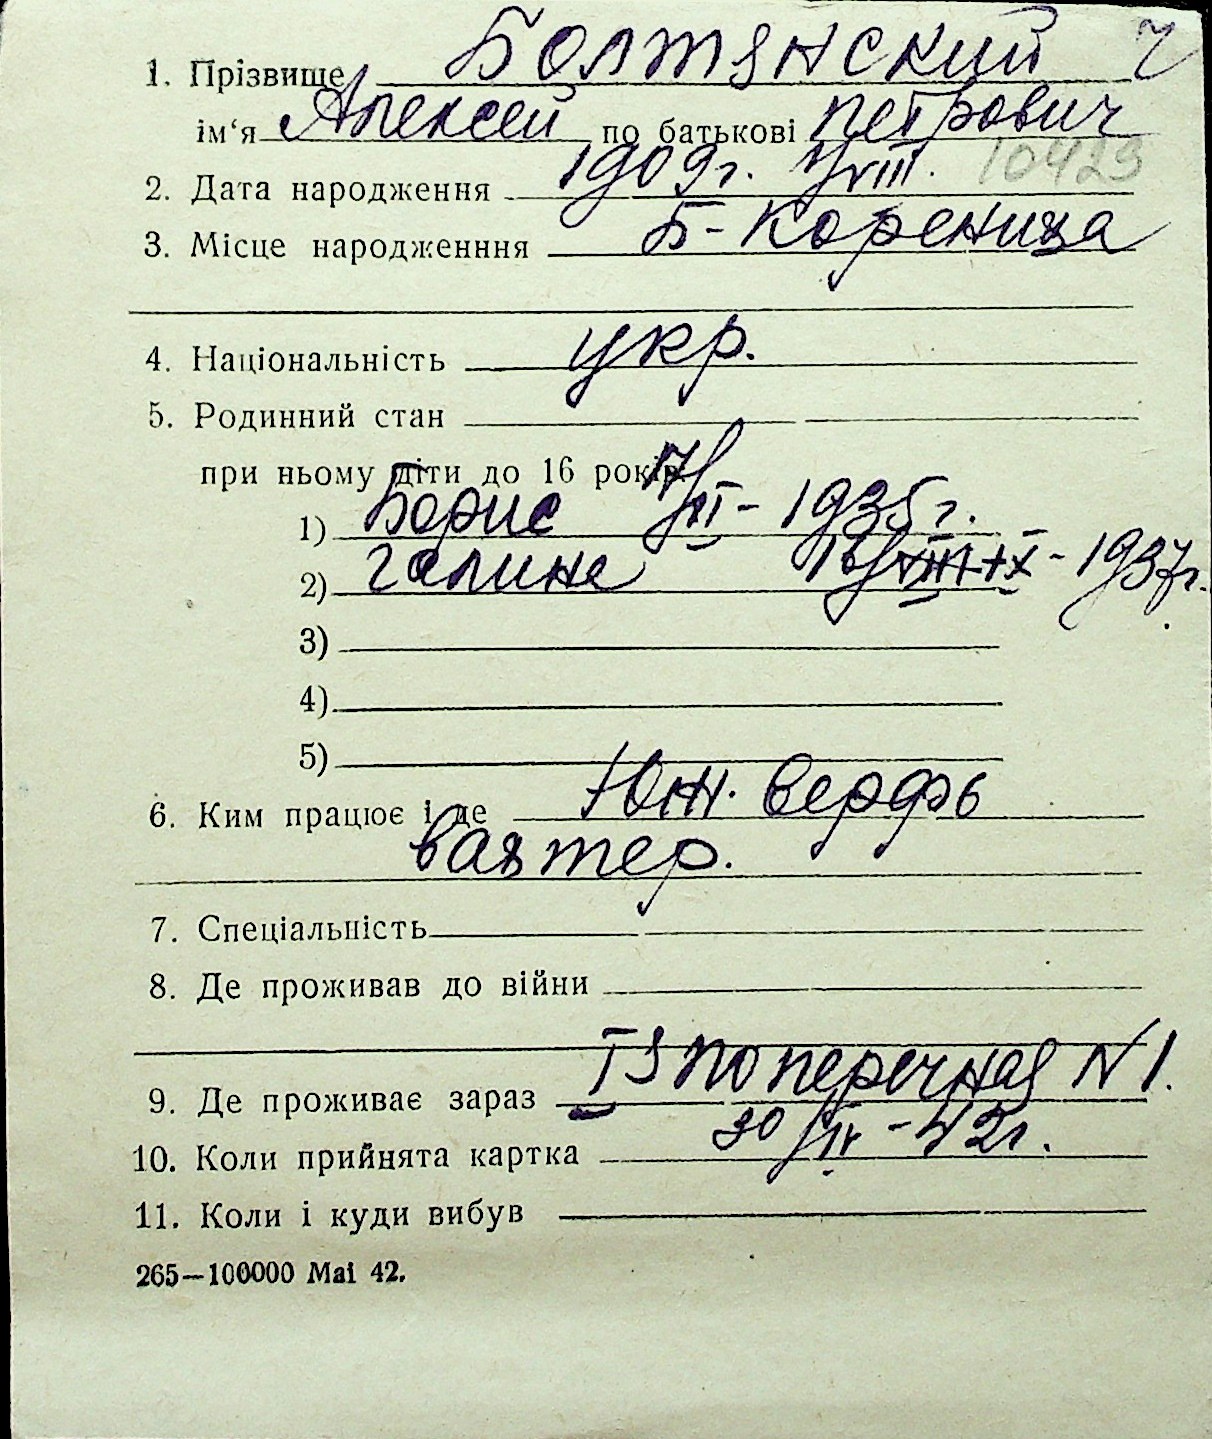 1. Прізвище Болтянский ч
ім‘я Алексей по батькові Петрович
2. Дата народження 1909г. VIII. 10423
3. Місце народженння Б-Кореница
4. Національність укр.
5. Родинний стан
при ньому діти до 16 років
1) Борис 17/VI - 1935г.
2) Галина - 1937г.
3)
4)
5)
6. Ким працює і де Юж. верфь
вахтер.
7. Спеціальність
8. Де проживав до війни
9. Де проживає зараз Поперечная N 1.
10. Коли прийнята картка 30/IV - 42г.
11. Коли і куди вибув
265—100000 Mai 42.